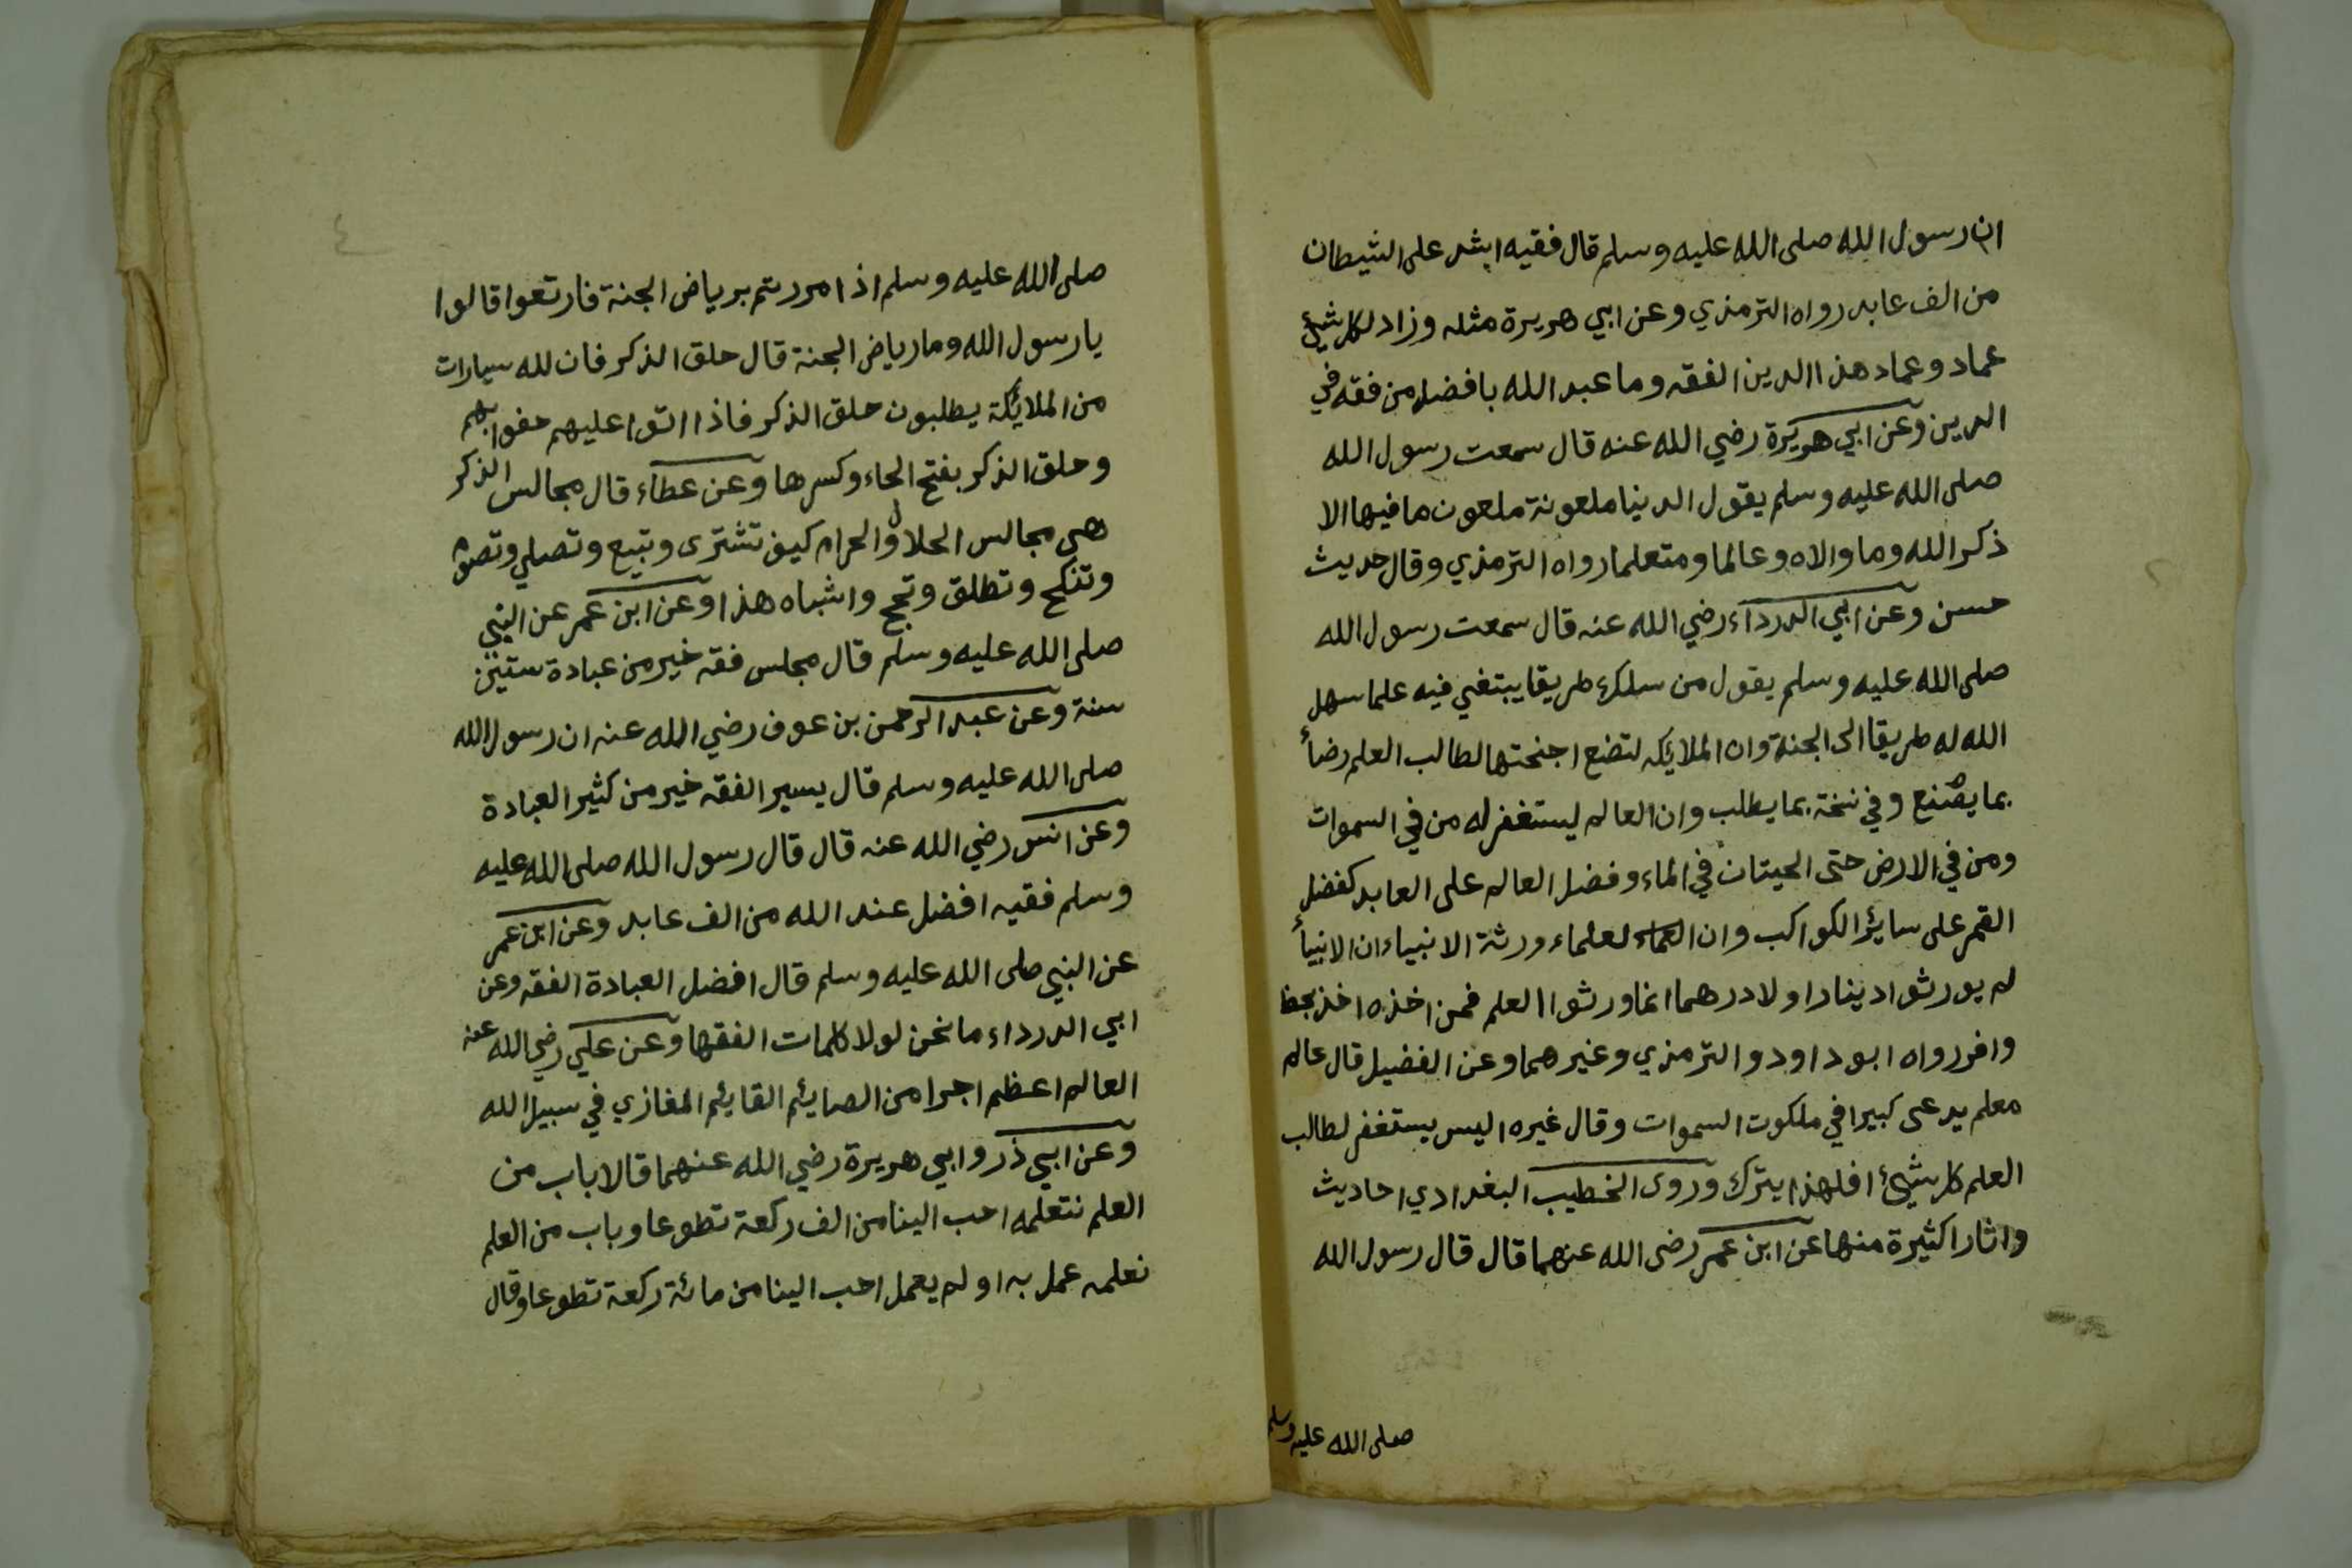 ان رسول الله صلى الله عليه وسلم قال فقيه اشد على الشيطان
من الف عابد رواه الترمذي وعن ابي هريرة مثله وزاد لكل شيئ
عماد وعماد هذا الدين الفقه وما عبد الله بافضل من فقه في
الدين وعن ابي هريرة رضي الله عنه قال سمعت رسول الله
صلى الله عليه وسلم يقول الدينا ملعونة ملعون ما فيها الا
ذكر الله وما والاه وعالما ومتعلما رواه الترمذي وقال حديث
حسن وعن ابي الدرداء رضي الله عنه قال سمعت رسول الله
صلى الله عليه وسلم يقول من سلك طريقا يبتغي فيه علما سهل
الله له طريقا الى الجنة وان الملايكه لتضع اجنحتها لطالب العلم رضاً
بما يصنع وفي نسخة بما يطلب وان العالم ليستغفر له من في السموات
ومن في الارض حتى الحيتان في الماء وفضل العالم على العابد كفضل
القمر على سائر الكواكب وان العلماء ورثة الانبياء ان الانبيأ
لم يورثوا دينارا ولا درهما انما ورثوا العلم فمن اخذه اخذ بحظ
وافر رواه ابو داود والترمذي وغيرهما وعن الفضيل قال عالم
معلم يدعى كبيرا في ملكوت السموات وقال غيره اليس يستغفر لطالب
العلم كل شيئ افلهذا يترك وروى الخطيب البغدادي احاديث
واثارا كثيرة منها عن ابن عمر رضى الله عنهما قال قال رسول الله
صلى الله عليه وسلم
٤
صلى الله عليه وسلم اذا مررتم برياض الجنة فارتعوا قالوا
يا رسول الله وما رياض الجنة قال حلق الذكر فان لله سيارات
من الملائكة يطلبون حلق الذكر فاذا اتوا عليهم حفوا بهم
وحلق الذكر بفتح الحاء وكسرها وعن عطاء قال مجالس الذكر
هي مجالس الحلال والحرام كيف تشترى وتبيع وتصلي وتصوم
وتنكح وتطلق وتحج واشباه هذا وعن ابن عمر عن النبي
صلى الله عليه وسلم قال مجلس فقه خير من عبادة ستين
سنة وعن عبد الرحمن بن عوف رضي الله عنه ان رسول الله
صلى الله عليه وسلم قال يسير الفقه خير من كثير العبادة
وعن انس رضي الله عنه قال قال رسول الله صلى الله عليه
وسلم فقيه افضل عند الله من الف عابد وعن ابن عمر
عن النبي صلى الله عليه وسلم قال افضل العبادة الفقه وعن
ابي الدرداء ما نحن لولا كلمات الفقها وعن علي رضي الله عنه
العالم اعظم اجرا من الصايئم القايئم المغازي في سبيل الله
وعن ابي ذر وابي هريرة رضي الله عنهما قالا باب من
العلم نتعلمه احب الينا من الف ركعة تطوعا وباب من العلم
نعلمه عمل به او لم يعمل احب الينا من مائة ركعة تطوعا وقال